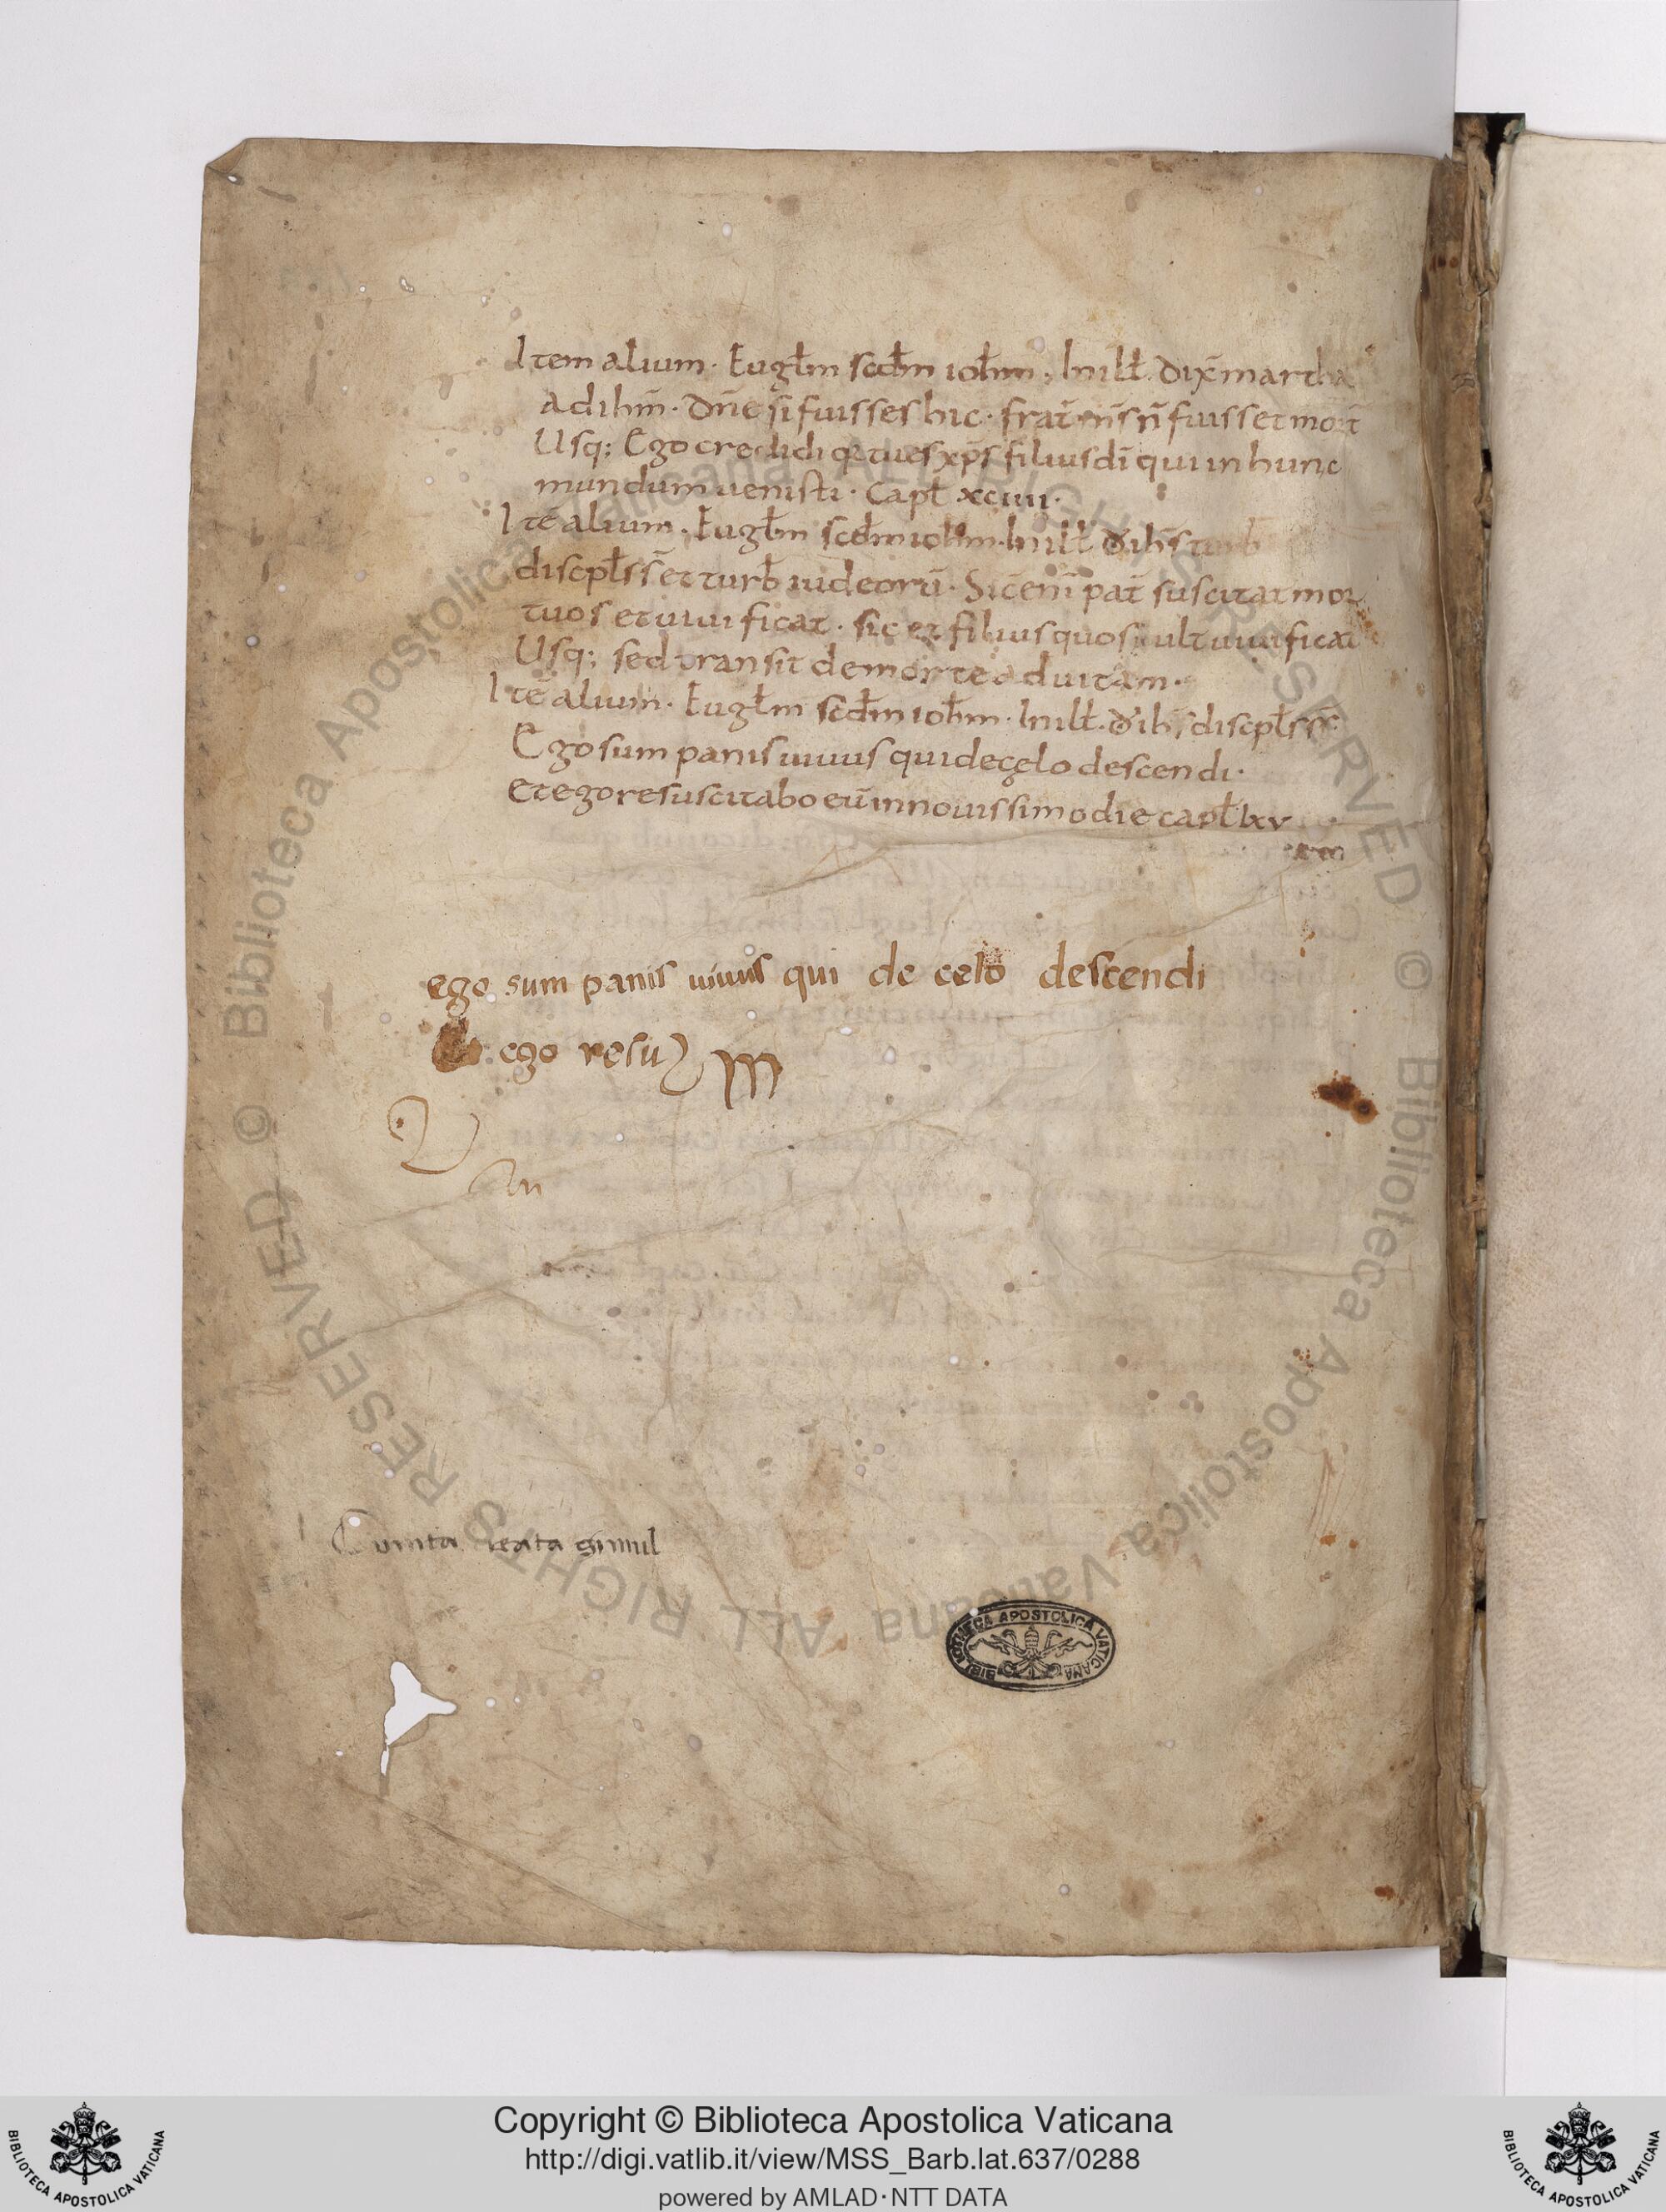 Item alium. Eugłm scdm̄ iohm̄. In illł. dix̄ martha
ad ihm̄. dn̄e si fuisses hic. frat̄ ms̄ n̄ fuisset mort̄
Usq; Ego credidi q tu es xp̄s filius dī qui in hunc
mundum uenisti. Capł xciiii.
Itē alium. Eugłm scdm̄ iohm̄. In illł. d ihs̄ turb
discipłs s̄ et turb iudeorū. Sic enī pat̄ suscitat mor
tuos et uiuificat. sic et filius quos uult uiuificat
Usq; sed transit de morte ad uitam.
Itē alium. Eugłm scdm̄ iohm̄. In illł. d ihs̄ discipłs s̄
Ego sum panis uiuus qui de cęlo descendi.
et ego resuscitabo eū in nouissimo die capł lxv
ego sum panis uiuus qui de celo descendi
ego resu
simul
BIBLIOTHECA APOSTOLICA VATICANA
© Biblioteca Apostolica Vaticana ALL RIGHTS RESERVED © Biblioteca Apostolica Vaticana ALL RIGHTS RESERVED
Copyright © Biblioteca Apostolica Vaticana
http://digi.vatlib.it/view/MSS_Barb.lat.637/0288
powered by AMLAD·NTT DATA
BIBLIOTECA APOSTOLICA VATICANA
BIBLIOTECA APOSTOLICA VATICANA